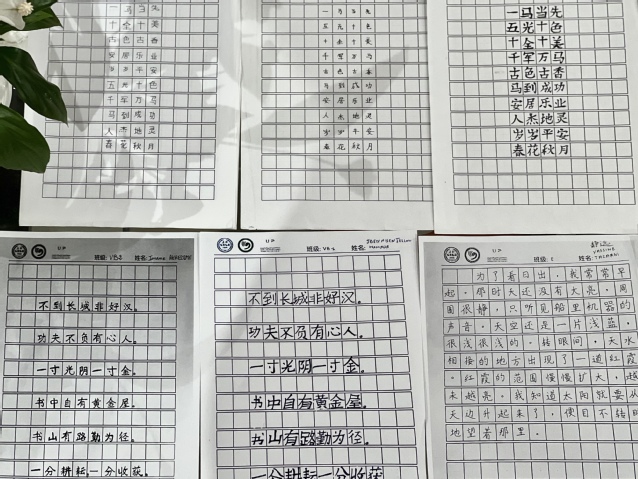 一马当先
十全十美
古色古香
安居乐业
岁岁平安
五光十色
千军万马
马到成功
人杰地灵
春花秋月
一马当先
五光十色
十全十美
千军万马
古色古香
马到成功
安居乐业
人杰地灵
岁岁平安
春花秋月
一马当先
五光十色
十全十美
千军万马
古色古香
马到成功
安居乐业
人杰地灵
岁岁平安
春花秋月
班级: VB-2 姓名:
不到长城非好汉。
功夫不负有心人。
一寸光阴一寸金。
书中自有黄金屋。
书山有路勤为径。
一分耕耘,一分收获。
班级: VB-2 姓名:
不到长城非好汉。
功夫不负有心人。
一寸光阴一寸金。
书中自有黄金屋。
书山有路勤为径。
一分耕耘一分收获
班级: 姓名:
为了看日出,我常常早
起。那时天还没有太亮,周
围很静,只听见船里机器的
声音。天空还是一片浅蓝,
很浅很浅的。转眼间,天水
相接的地方出现了一道红霞
。红霞的范围慢慢扩大,越
来越亮。我知道太阳就要从
天边升起来了,便目不转睛
地望着那里。